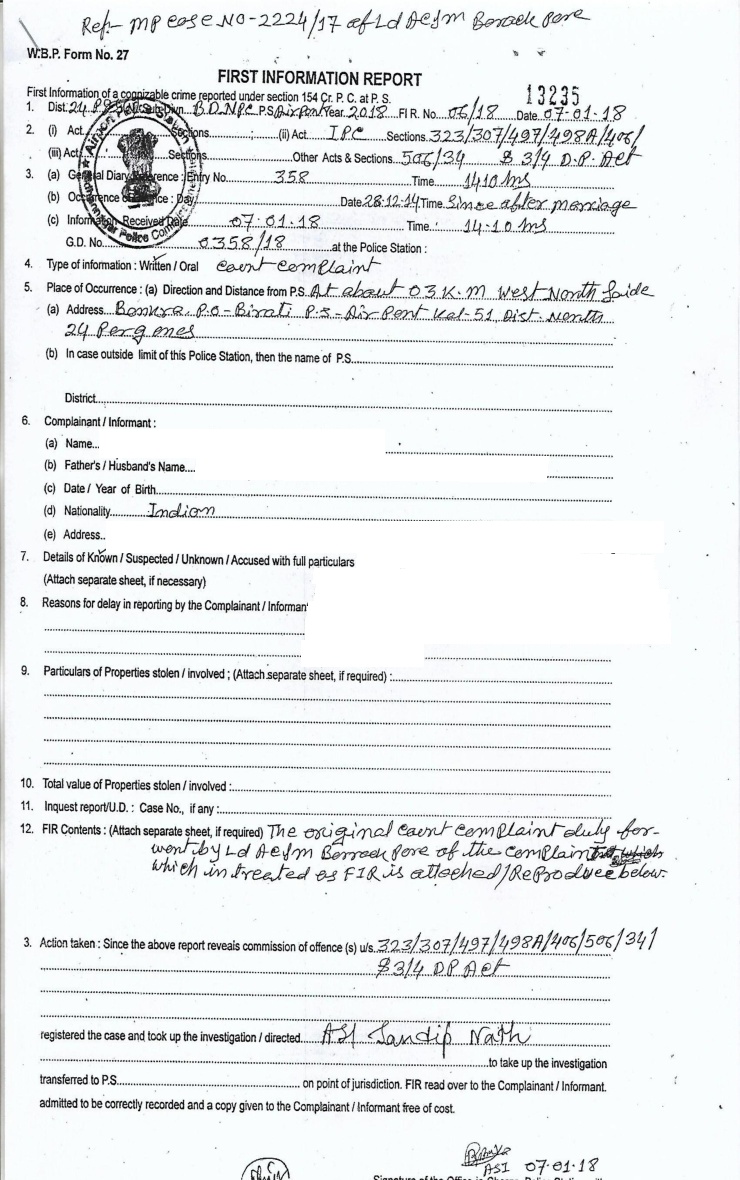 Ref- MP case NO-2224/17 of Ld ACJM Barrack pore
W.B.P. Form No. 27
FIRST INFORMATION REPORT
13235
First Information of a cognizable crime reported under section 154 Cr. P. C. at P. S.
1. Dist. 24 PGS(N) Sub-Divn. B.D.N.P.C P.S Airport Year. 2018 F I R. No. 06/18 Date 07-01-18
2. (i) Act Sections (ii) Act IPC Sections. 323/307/497/498A/406/
(iii) Act Sections Other Acts & Sections 506/34 & 3/4 D.P. Act
3. (a) General Diary Reference : Entry No. 358 Time 1410 hrs
(b) Occurrence of Offence : Day Date 28-12-14 Time. Since after marriage
(c) Information Received Date 07-01-18 Time. 14-10 hrs
G.D. No. 0358/18 at the Police Station :
4. Type of information : Written / Oral Court Complaint
5. Place of Occurrence : (a) Direction and Distance from P.S. At about 03 K.M West North Saide
(a) Address Bankra, P.O - Birati P.S - Air Port Kol-51, Dist. North
24 Pergones
(b) In case outside limit of this Police Station, then the name of P.S.
District
6. Complainant / Informant :
(a) Name
(b) Father's / Husband's Name
(c) Date / Year of Birth
(d) Nationality Indian
(e) Address
7. Details of Known / Suspected / Unknown / Accused with full particulars
(Attach separate sheet, if necessary)
8. Reasons for delay in reporting by the Complainant / Informan
9. Particulars of Properties stolen / involved ; (Attach separate sheet, if required) :
10. Total value of Properties stolen / involved :
11. Inquest report/U.D. : Case No., if any :
12. FIR Contents : (Attach separate sheet, if required) The original Court Complaint duty for-
went by Ld ACJM Barrack Pore of the Complaint
which in treated as FIR is attached/ReProduce below.
3. Action taken : Since the above report reveals commission of offence (s) u/s. 323/307/497/498A/406/506/34/
& 3/4 DP Act
registered the case and took up the investigation / directed ASI Sandip Nath
to take up the investigation
transferred to P.S. on point of jurisdiction. FIR read over to the Complainant / Informant.
admitted to be correctly recorded and a copy given to the Complainant / Informant free of cost.
ASI 07-01-18